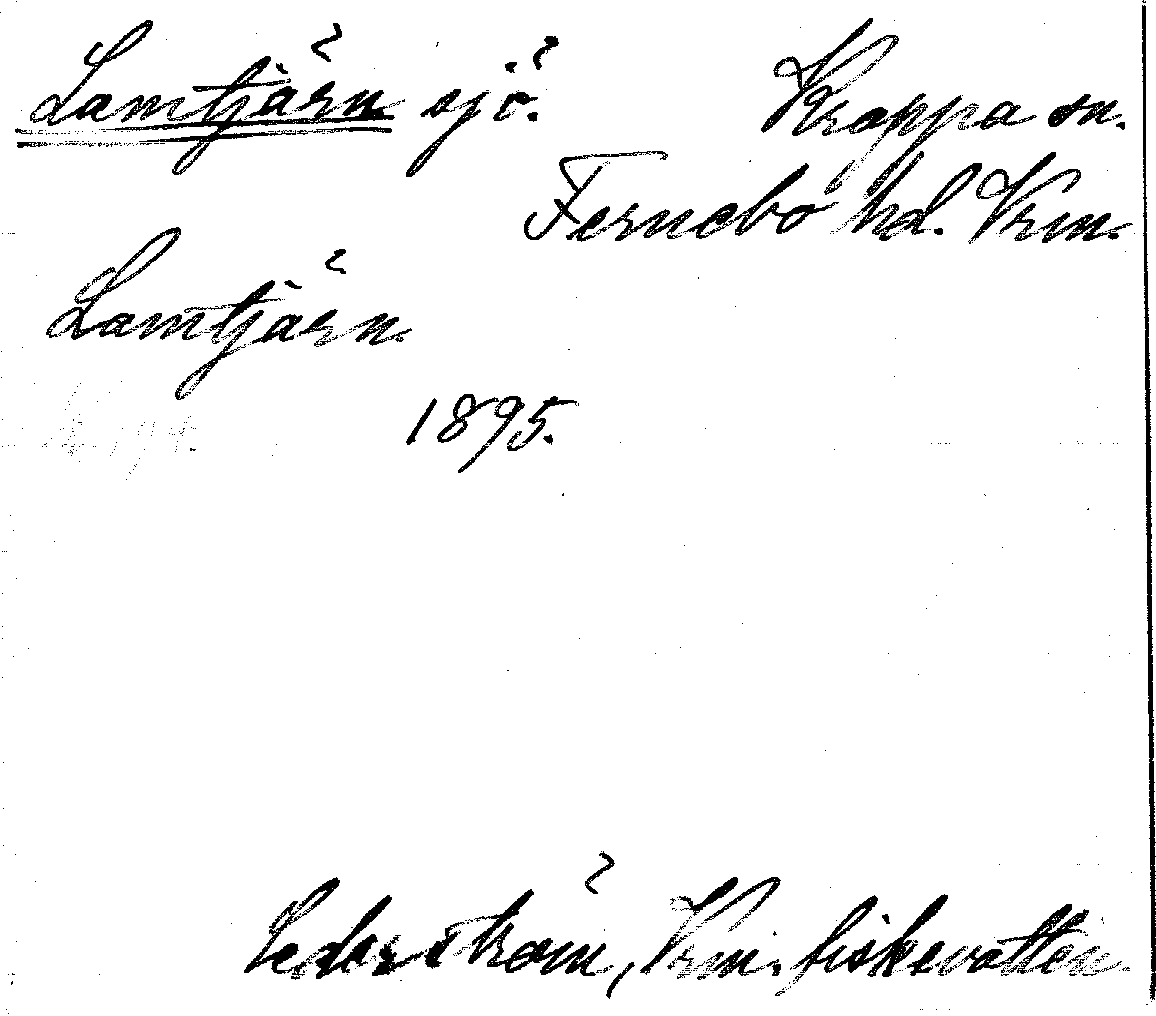 Lamtjärn sjö.
Kroppa sn.
Fernebo hd. Vrm.
Lamtjärn.
1895.
Cederström, Vrm. fiskevatten.